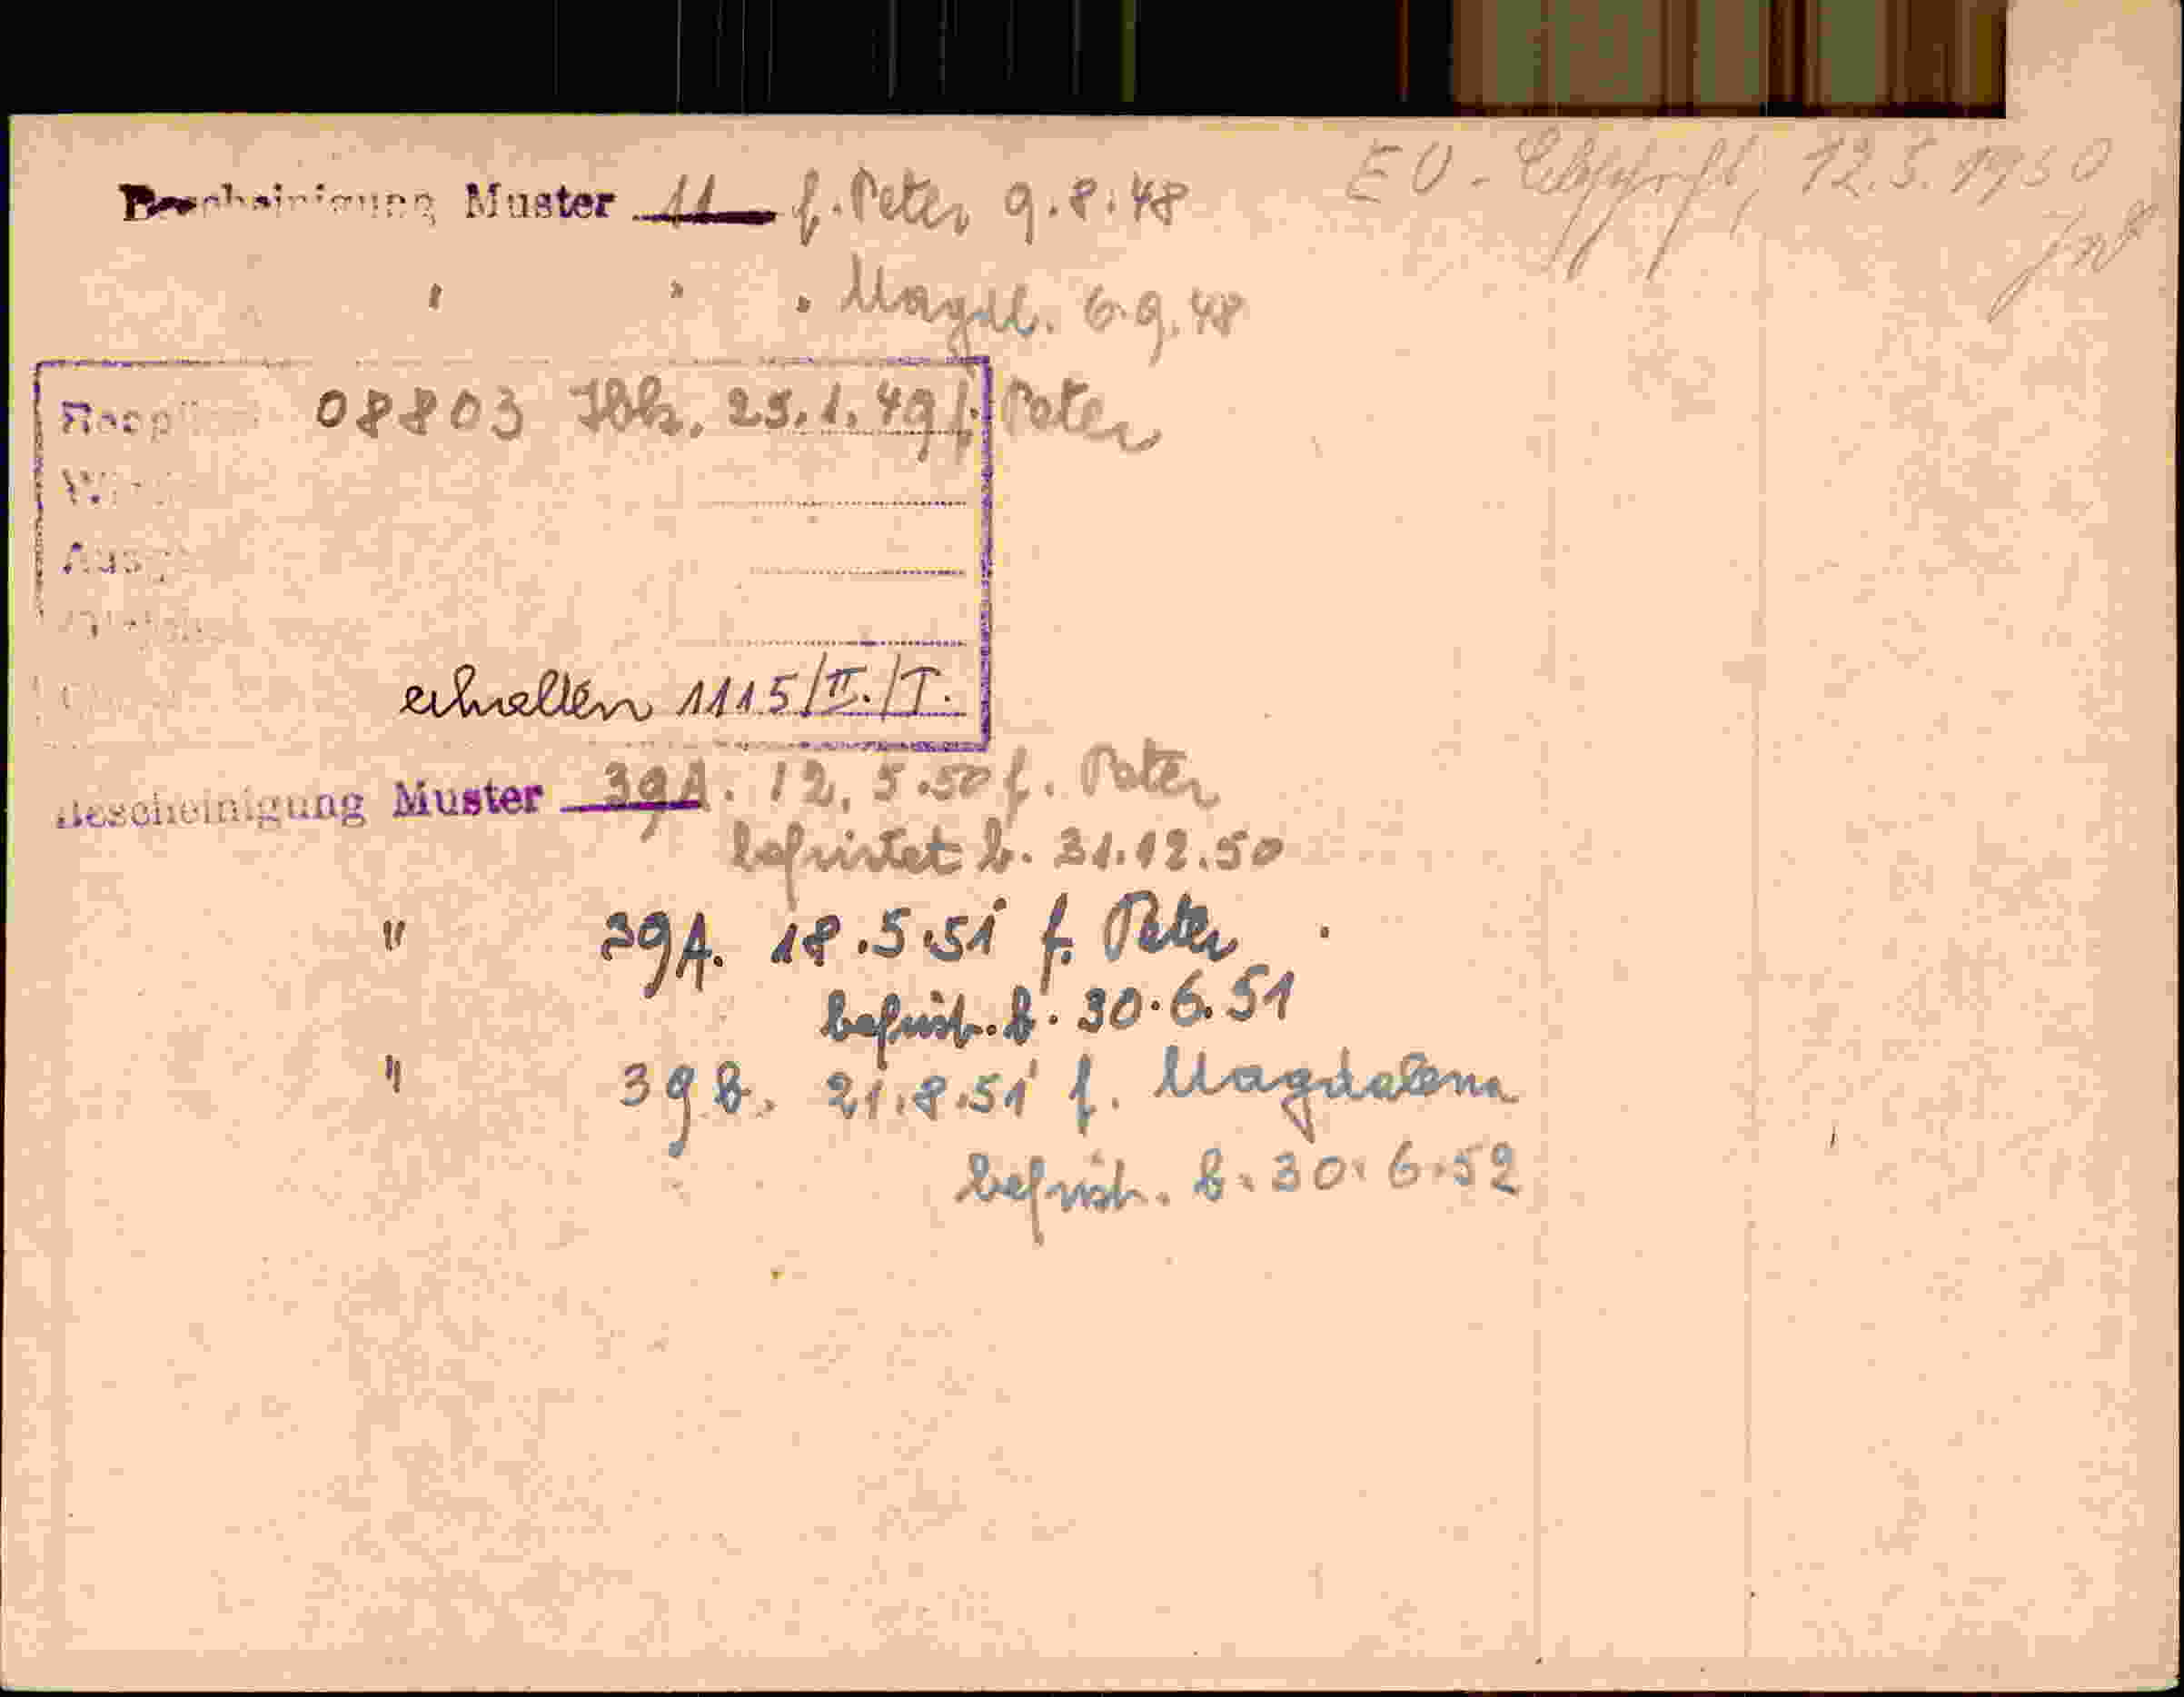 Bescheinigung Muster 11 f. Peter 9.8.48
EU - 12.5.1950
" " " Magdl. 6.9.48
08803 Jbk. 25.1.49 f. Peter
erhalten 1115/II./T.
Bescheinigung Muster 39A. 12.5.50 f. Peter
befristet b. 31.12.50
" 39A. 18.5.51 f. Peter
befrist. b. 30.6.51
" 39b. 21.8.51 f. Magdalena
befrist. b. 30.6.52